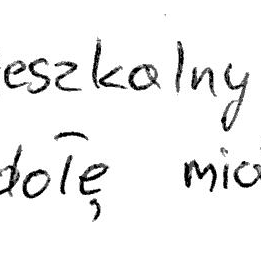 eszkalny
dolę mio